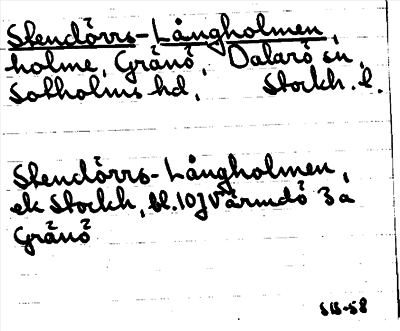 Stendörrs-Långholmen,
holme, Gränö, Dalarö sn,
Sotholms hd, Stockh. l.
Stendörrs-Långholmen,
ek Stockh, bl. 10J Värmdö 3a
Gränö
SIB-58